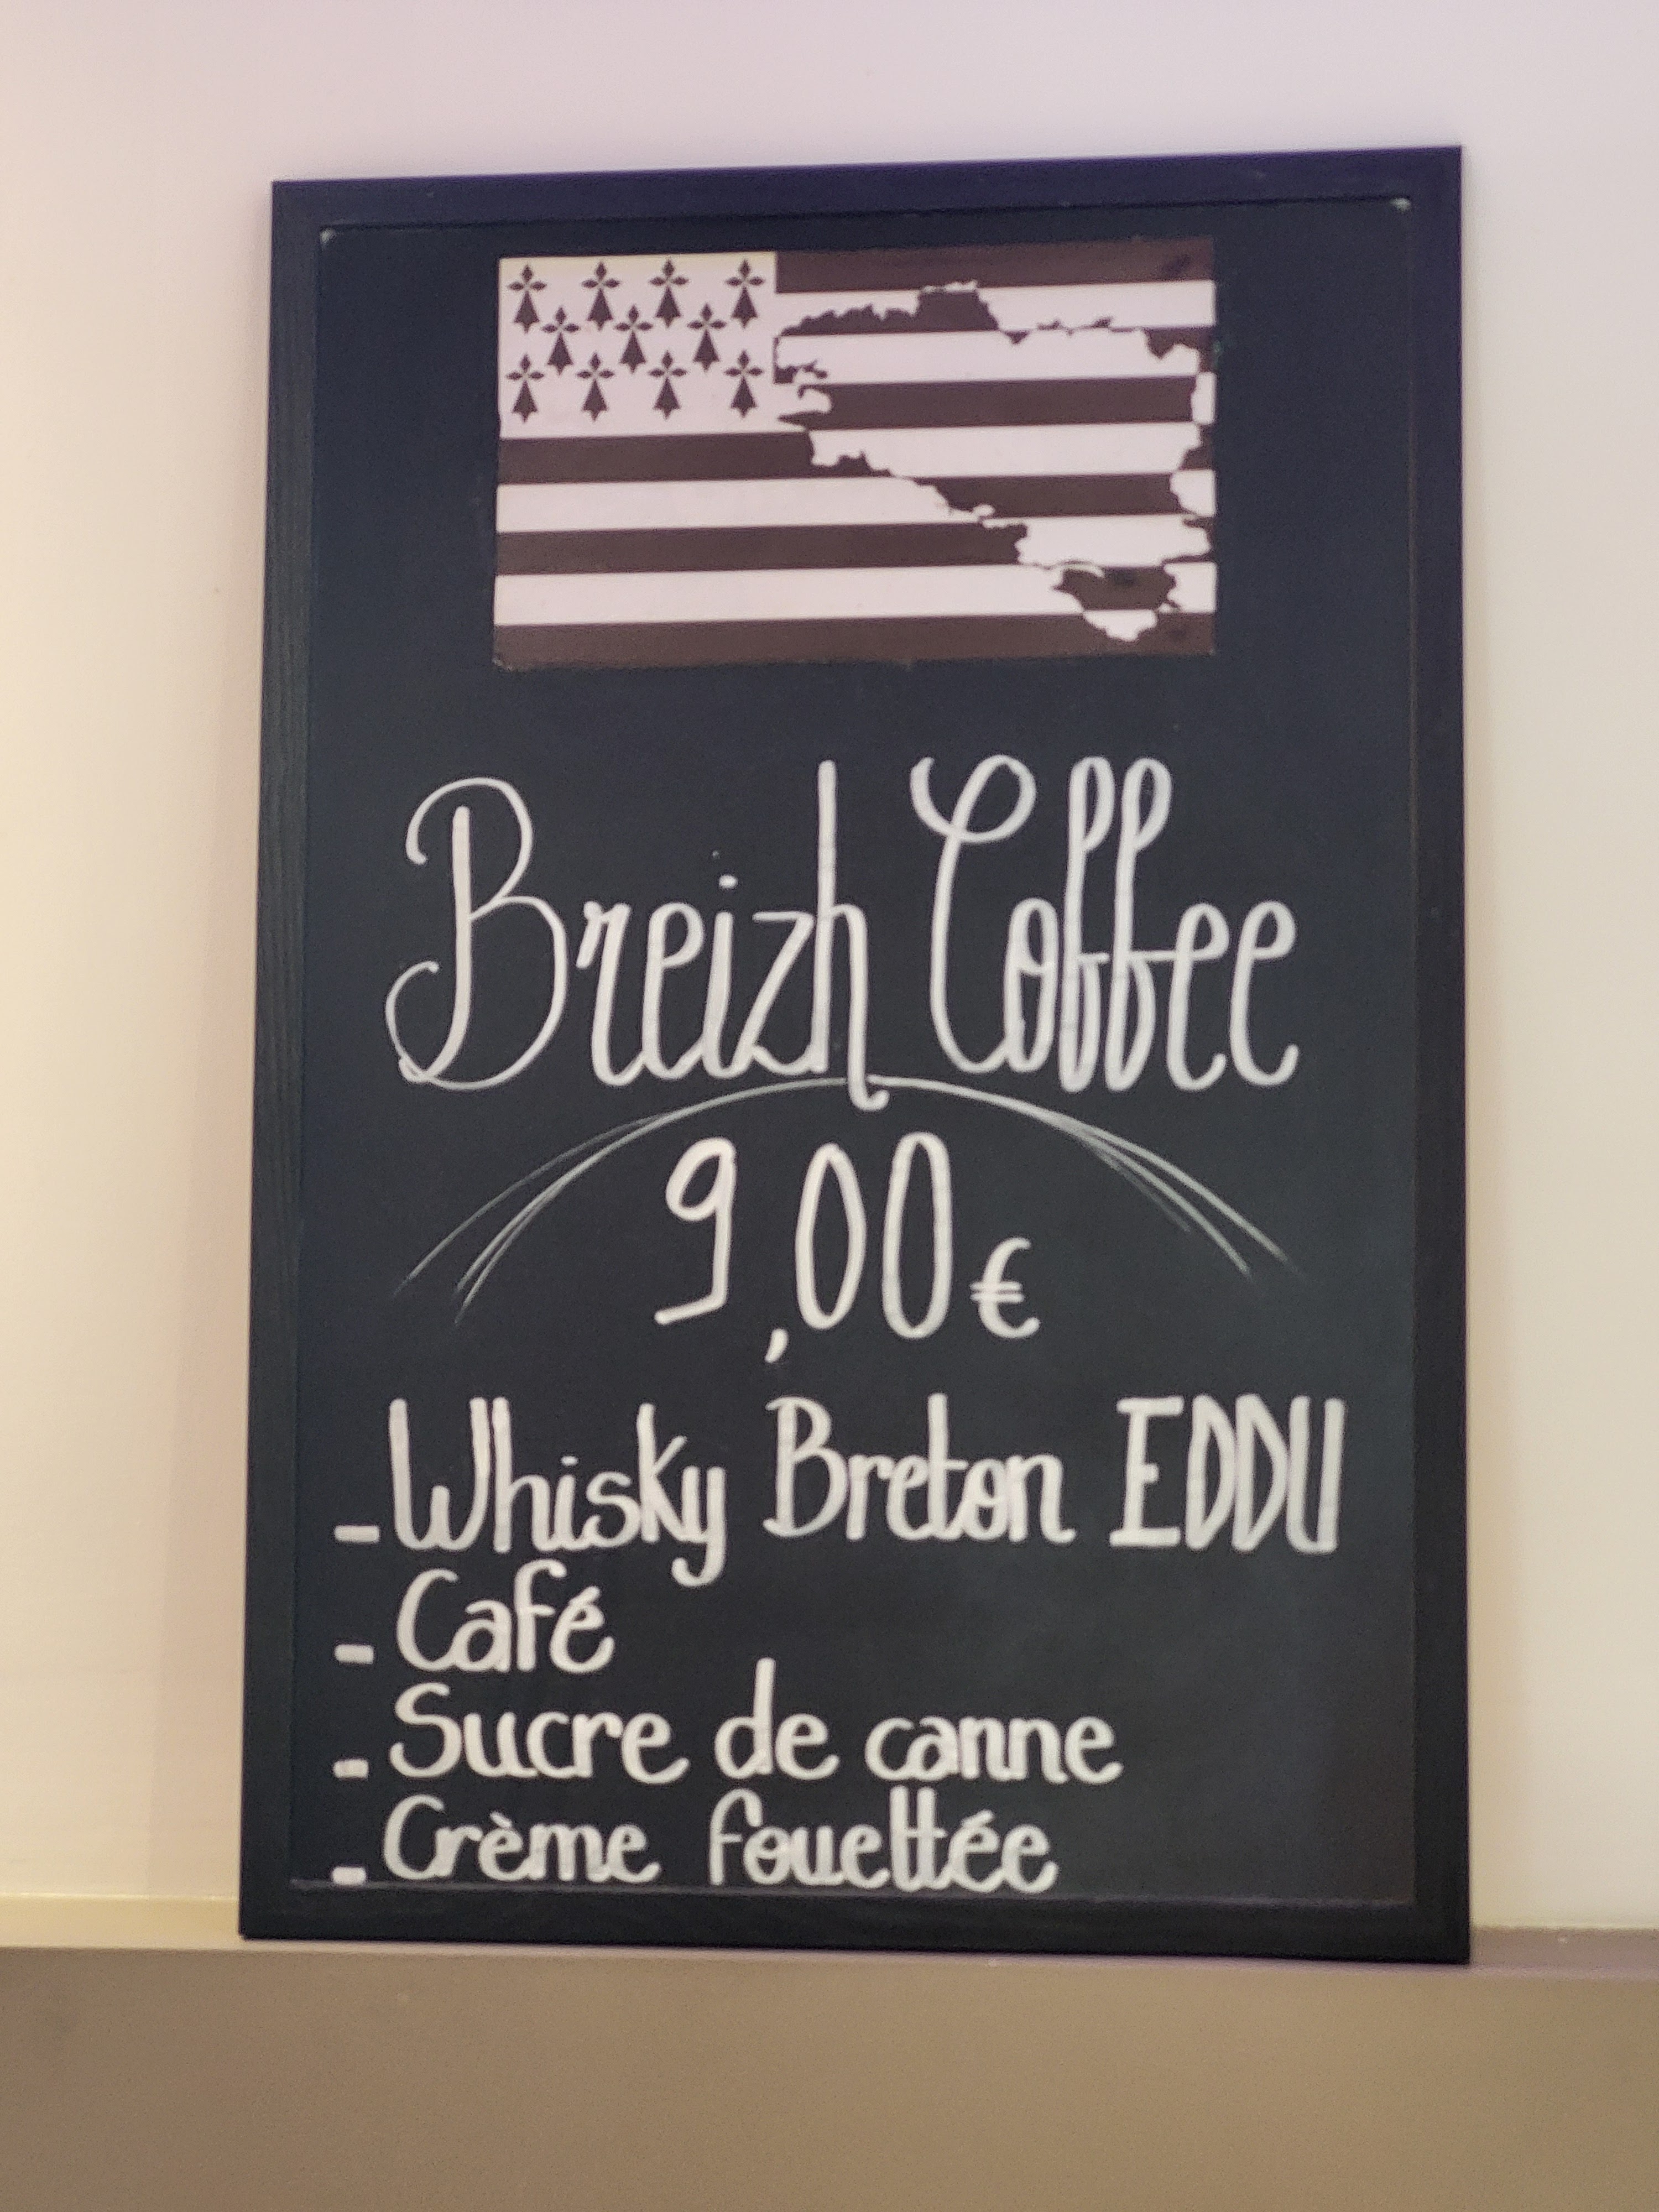 Breizh Coffee
9,00 €
- Whisky Breton EDDU
- Café
- Sucre de canne
- Crème fouettée